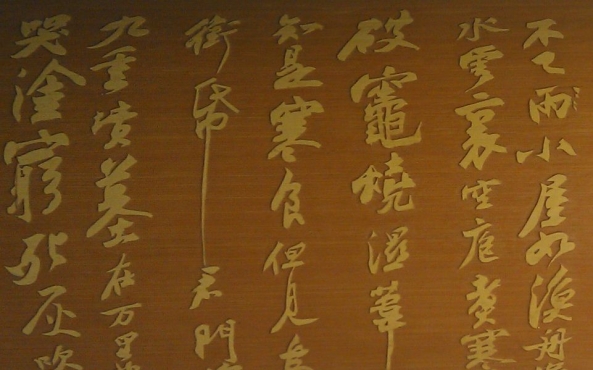 不已雨小屋如漁舟
水雲裏空庖煮寒
破竈燒濕葦
知是寒食但見烏
銜帋君門
九重墳墓在万里
哭塗窮死灰吹